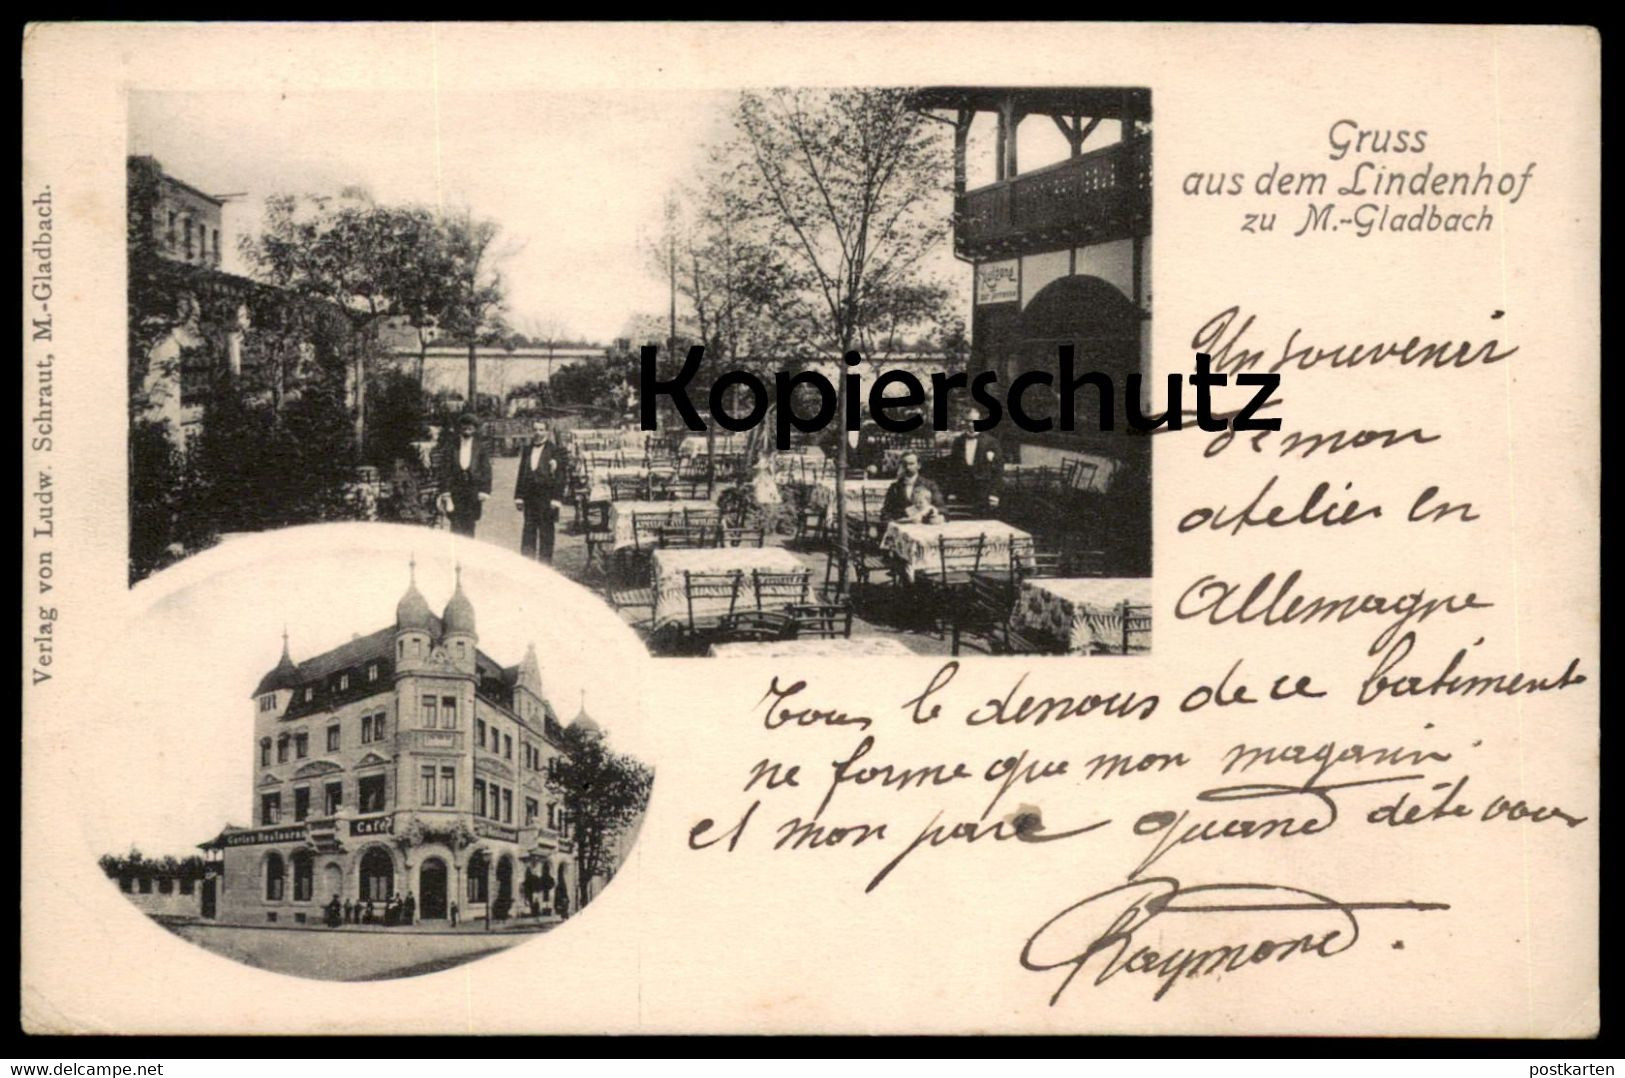 Gruss
aus dem Lindenhof
zu M.-Gladbach
Verlag von Ludw. Schraut, M.-Gladbach.
Kopierschutz
Un souvenir
de mon
atelier en
Allemagne
Tous le dessous de ce batiment
ne forme que mon magasin
et mon parc quand
Raymond.
Garten-Restaurant
Café
delcampe.net
postkarten